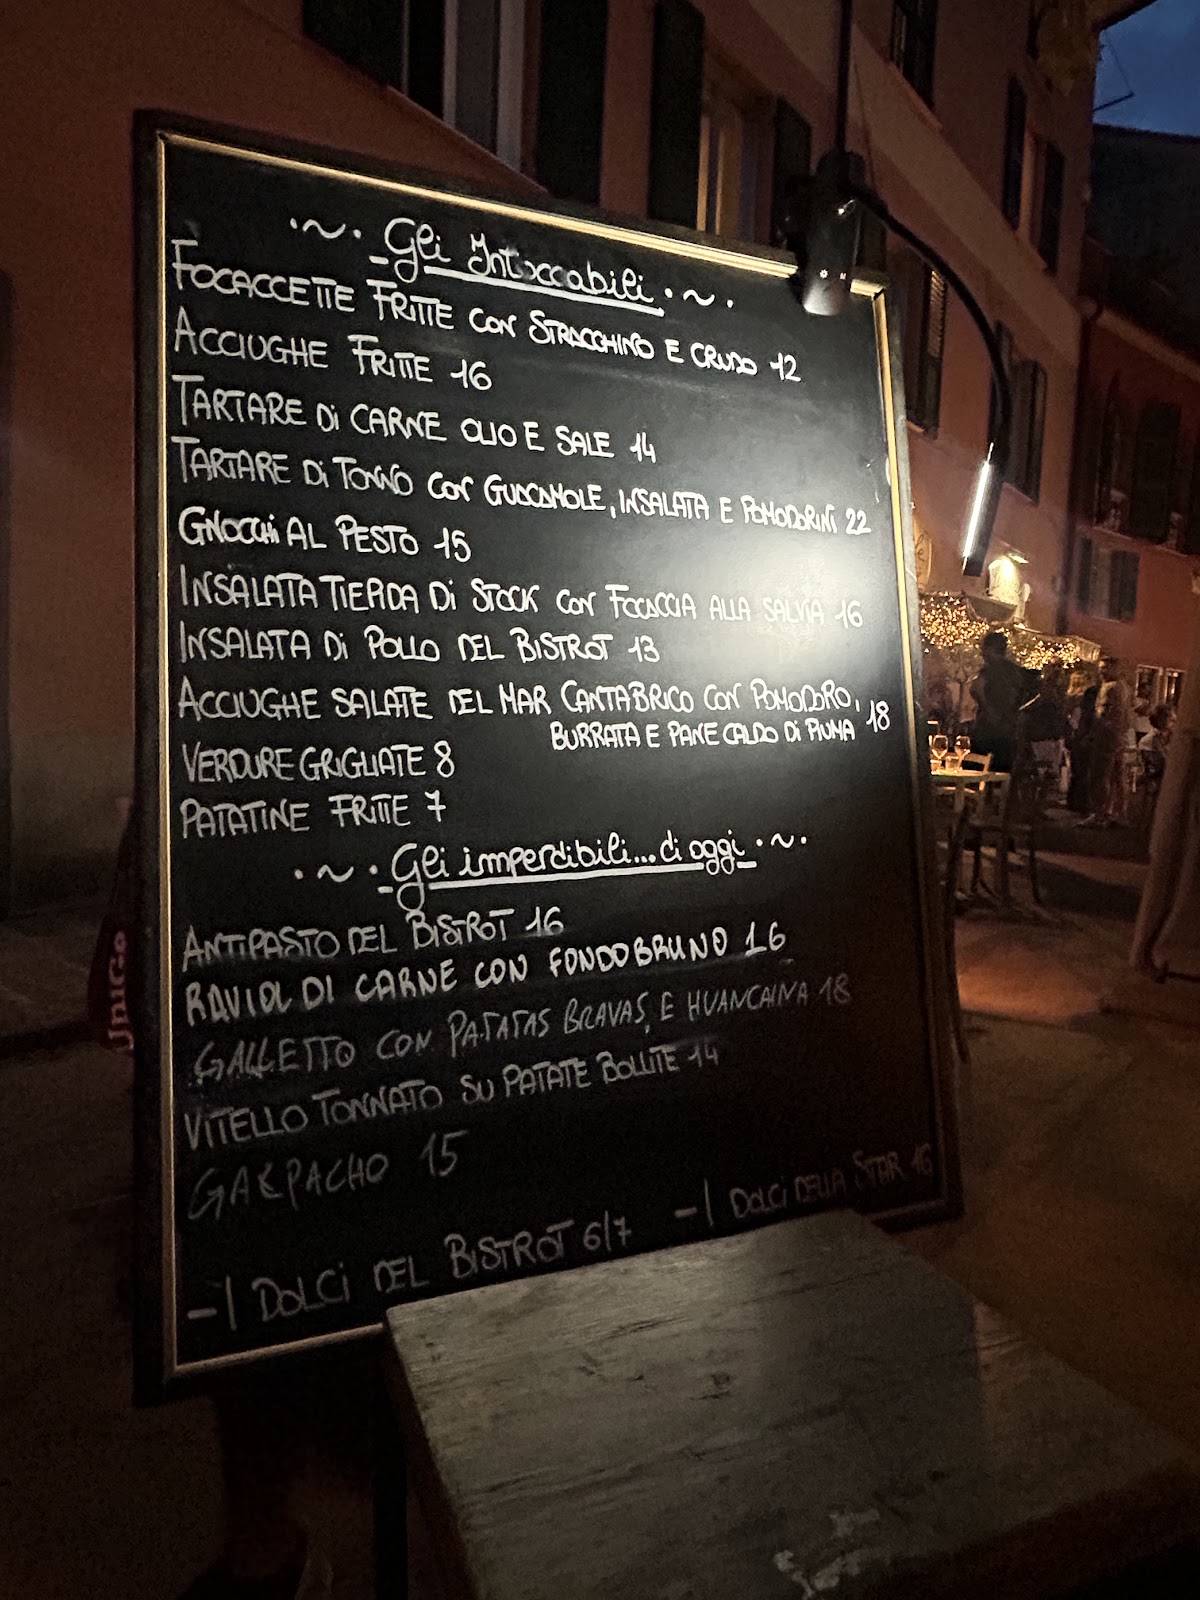 Gli Intoccabili
FOCACCETTE FRITTE CON STRACCHINO E CRUDO 12
ACCIUGHE FRITTE 16
TARTARE Di CARNE OLIO E SALE 14
TARTARE Di TONNO CON GUACAMOLE, INSALATA E POMODORINI 22
GNOCCHi AL PESTO 15
INSALATA TIEPIDA Di STOCK CON FOCACCIA ALLA SALVIA 16
INSALATA Di POLLO DEL BISTROT 13
ACCIUGHE SALATE DEL MAR CANTABRICO CON POMODORO,
BURRATA E PANE CALDO Di PIUMA 18
VERDURE GRIGLIATE 8
PATATINE FRITTE 7
Gli imperdibili... di oggi
ANTIPASTO DEL BISTROT 16
RAVIOLI DI CARNE CON FONDO BRUNO 16
GALLETTO CON PATATAS BRAVAS, E HUANCAINA 18
VITELLO TONNATO SU PATATE BOLLITE 14
GAZPACHO 15
-| DOLCI DEL BISTROT 6/7
-| DOLCI DELLA STAR 16
UniGo